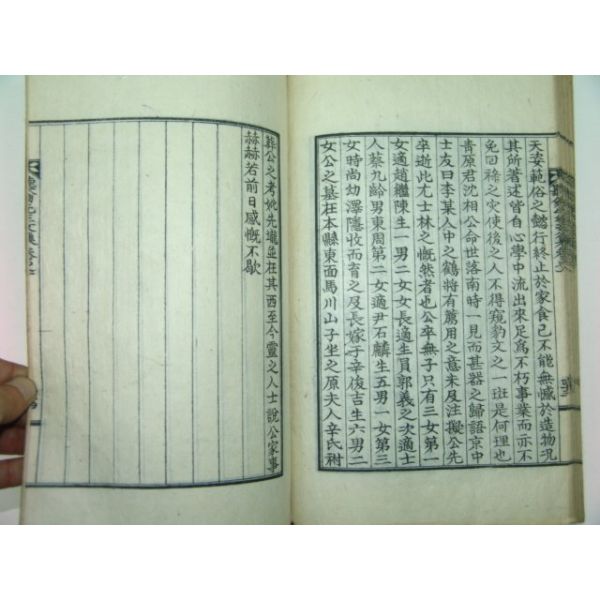 天姿範俗之懿行終止於家食已不能無憾於造物況
其所著述皆自心學中流出來足爲不朽事業而亦不
免回祿之灾使後之人不得窺豹文之一斑是何理也
靑原君沈相公命世落南時一見而甚器之歸語京中
士友曰李某人中之鶴將有薦用之意未及注擬公先
卒逝此尤士林之慨然者也公卒無子只有三女第一
女適趙繼陳生一男二女女長適生員郭義之次適士
人蔡九齡男東周第二女適尹石麟生五男一女第三
女時尚幼澤隱收而育之及長嫁于辛俊吉生六男二
女公之墓在本縣東面馬川山子坐之原夫人辛氏祔
葬公之考妣先壠並在其西至今靈之人士說公家事
赫赫若前日感慨不歇